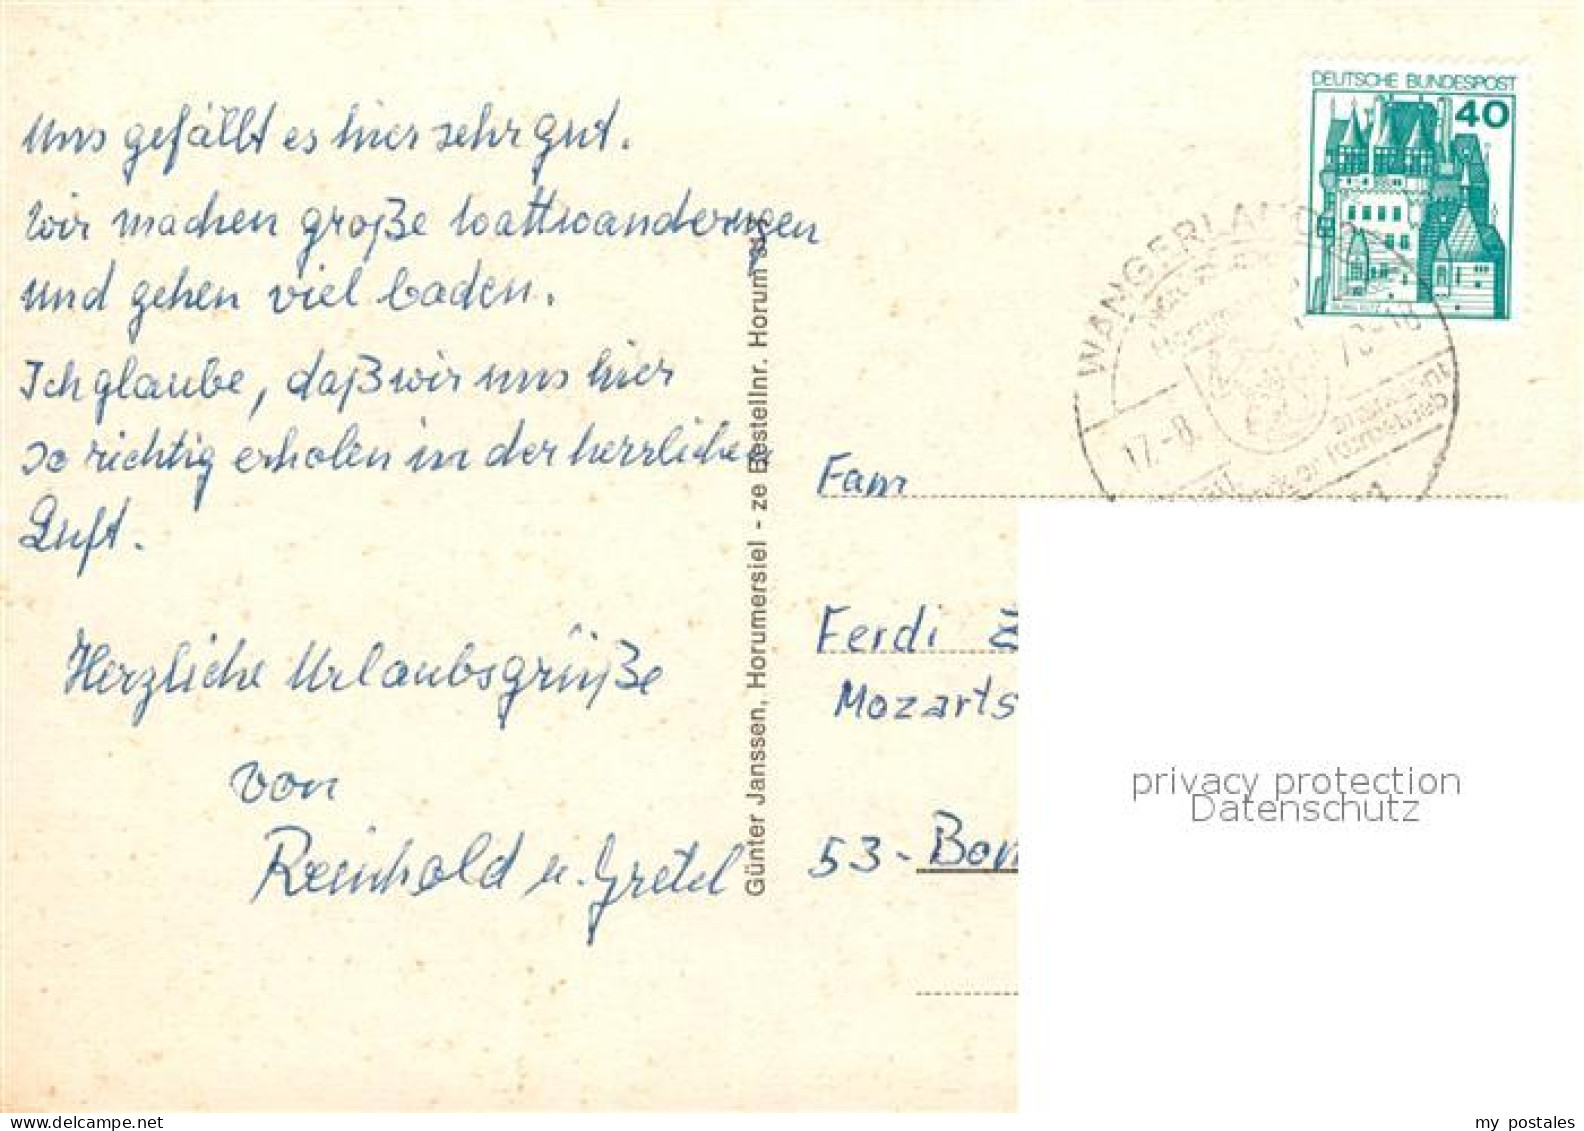 Uns gefällt es hier sehr gut.
Wir machen große Wattwanderungen
und gehen viel baden.
Ich glaube, daß wir uns hier
so richtig erholen in der herrlichen
Luft.
Herzliche Urlaubsgrüße
von
Reinhold u. Gretel
Günter Janssen, Horumersiel - ze Bestellnr. Horum
DEUTSCHE BUNDESPOST
40
WANGERLAND
17.-8
-18
Fam
Ferdi
Mozarts
53-Bon
privacy protection
Datenschutz
delcampe.net
my postales